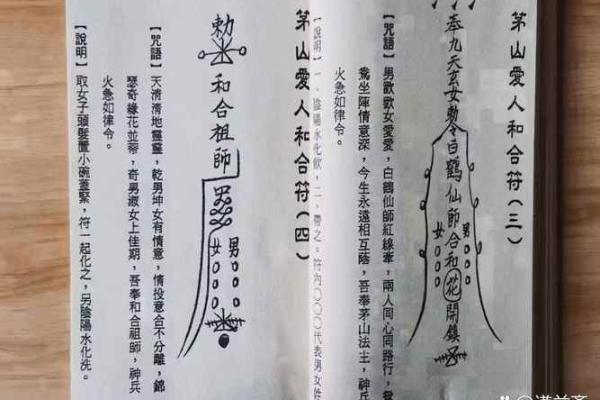 茅山愛人和合符（三）
奉九天玄女勅令白鶴仙師合和花開鎮
男
女
【咒語】男歡歡女愛愛，白鶴仙師紅線牽，兩人同心同路行，鴛
鴦坐陣情意深，今生永遠相互蔭，吾奉茅山法主，神兵
火急如律令。
【說明】一、陰陽水化飲，二、帶之。符內〇〇〇代表男女姓
茅山愛人和合符（四）
勅
和合祖師
男
女
【咒語】天清清地靈靈，乾男坤女有情意，情投意合不分離，錦
瑟奇緣花並蒂，奇男淑女上佳期，吾奉和合祖師，神兵
火急如律令。
【說明】取女子頭髮置小碗蓋緊，符一起化之，另陰陽水化洗。